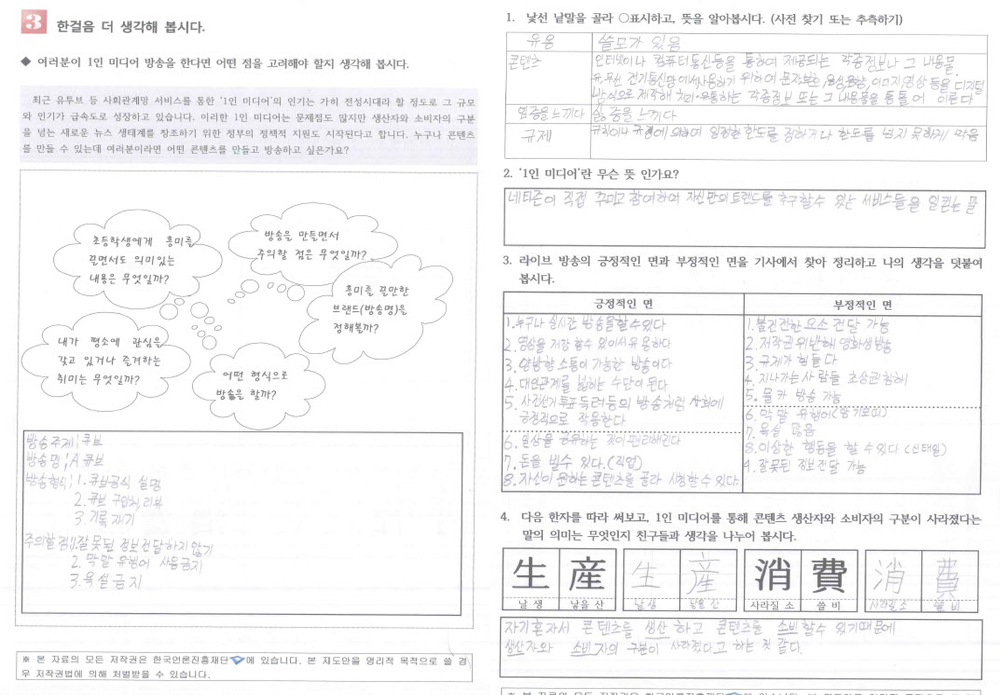 3 한걸음 더 생각해 봅시다.
◆ 여러분이 1인 미디어 방송을 한다면 어떤 점을 고려해야 할지 생각해 봅시다.
최근 유투브 등 사회관계망 서비스를 통한 '1인 미디어'의 인기는 가히 전성시대라 할 정도로 그 규모
와 인기가 급속도로 성장하고 있습니다. 이러한 1인 미디어는 문제점도 많지만 생산자와 소비자의 구분
을 넘는 새로운 뉴스 생태계를 창조하기 위한 정부의 정책적 지원도 시작된다고 합니다. 누구나 콘텐츠
를 만들 수 있는데 여러분이라면 어떤 콘텐츠를 만들고 방송하고 싶은가요?
초등학생에게 흥미를
끌면서도 의미있는
내용은 무엇일까?
방송을 만들면서
주의할 점은 무엇일까?
흥미를 끌만한
브랜드(방송명)은
정해볼까?
내가 평소에 관심을
갖고 있거나 즐겨하는
취미는 무엇일까?
어떤 형식으로
방송을 할까?
방송주제: 큐브
방송명: A큐브
방송형식: 1. 큐브공식 설명
2. 큐브 구입처, 리뷰
3. 기록 재기
주의할점: 1. 잘못된 정보 전달하지 않기
2. 막말 유행어 사용금지
3. 욕설금지
※ 본 자료의 모든 저작권은 한국언론진흥재단에 있습니다. 본 지도안을 영리적 목적으로 쓸 경
우 저작권법에 의해 처벌받을 수 있습니다.
1. 낯선 낱말을 골라 ○표시하고, 뜻을 알아봅시다. (사전 찾기 또는 추측하기)
유용 쓸모가 있음
콘텐츠 인터넷이나 컴퓨터통신등을 통하여 제공되는 각종정보나 그 내용물.
유·무선 전기통신망에서 사용하기 위하여 문자·부호·음성·음향·이미지·영상 등을 디지털
방식으로 제작해 처리·유통하는 각종정보 또는 그 내용물을 통틀어 이른다
염증을느끼다 싫증을 느끼다
규제 규칙이나 규정에 의하여 일정한 한도를 정하거나 한도를 넘지 못하게 막음
2. '1인 미디어'란 무슨 뜻 인가요?
네티즌이 직접 꾸미고 참여하여 자신만의 트렌드를 추구할수 있는 서비스들을 일컫는 말
3. 라이브 방송의 긍정적인 면과 부정적인 면을 기사에서 찾아 정리하고 나의 생각을 덧붙여
봅시다.
긍정적인 면
1. 누구나 실시간 방송을할수있다
2. 영상을 저장 할수 있어서 유용하다
3. 쌍방향 소통이 가능한 방송이다
4. 대인관계를 넓히는 수단이 된다
5. 사전선거 투표 독려등의 방송처럼 사회에
긍정적으로 작용한다
6. 일상을 공유하는 것이 편리해진다
7. 돈을 벌수 있다. (직업)
8. 자신이 원하는 콘텐츠를 골라 시청할수 있다
부정적인 면
1. 불건전한 요소 전달 가능
2. 저작권 위반해 영화생방송
3. 규제가 힘들다
4. 지나가는 사람들 초상권침해
5. 몰카 방송 가능
6. 막말 유행어
7. 욕설 많음
8. 이상한 행동을 할 수 있다 (신태일)
4. 잘못된 정보전달 가능
4. 다음 한자를 따라 써보고, 1인 미디어를 통해 콘텐츠 생산자와 소비자의 구분이 사라졌다는
말의 의미는 무엇인지 친구들과 생각을 나누어 봅시다.
生 産 生 産 消 費 消 費
날 생 낳을 산 날 생 낳을 산 사라질 소 쓸 비 사라질 소 쓸 비
자기혼자서 콘텐츠를 생산 하고 콘텐츠를 소비할수 있기때문에
생산자와 소비자의 구분이 사라졌다고 하는 것 같다.